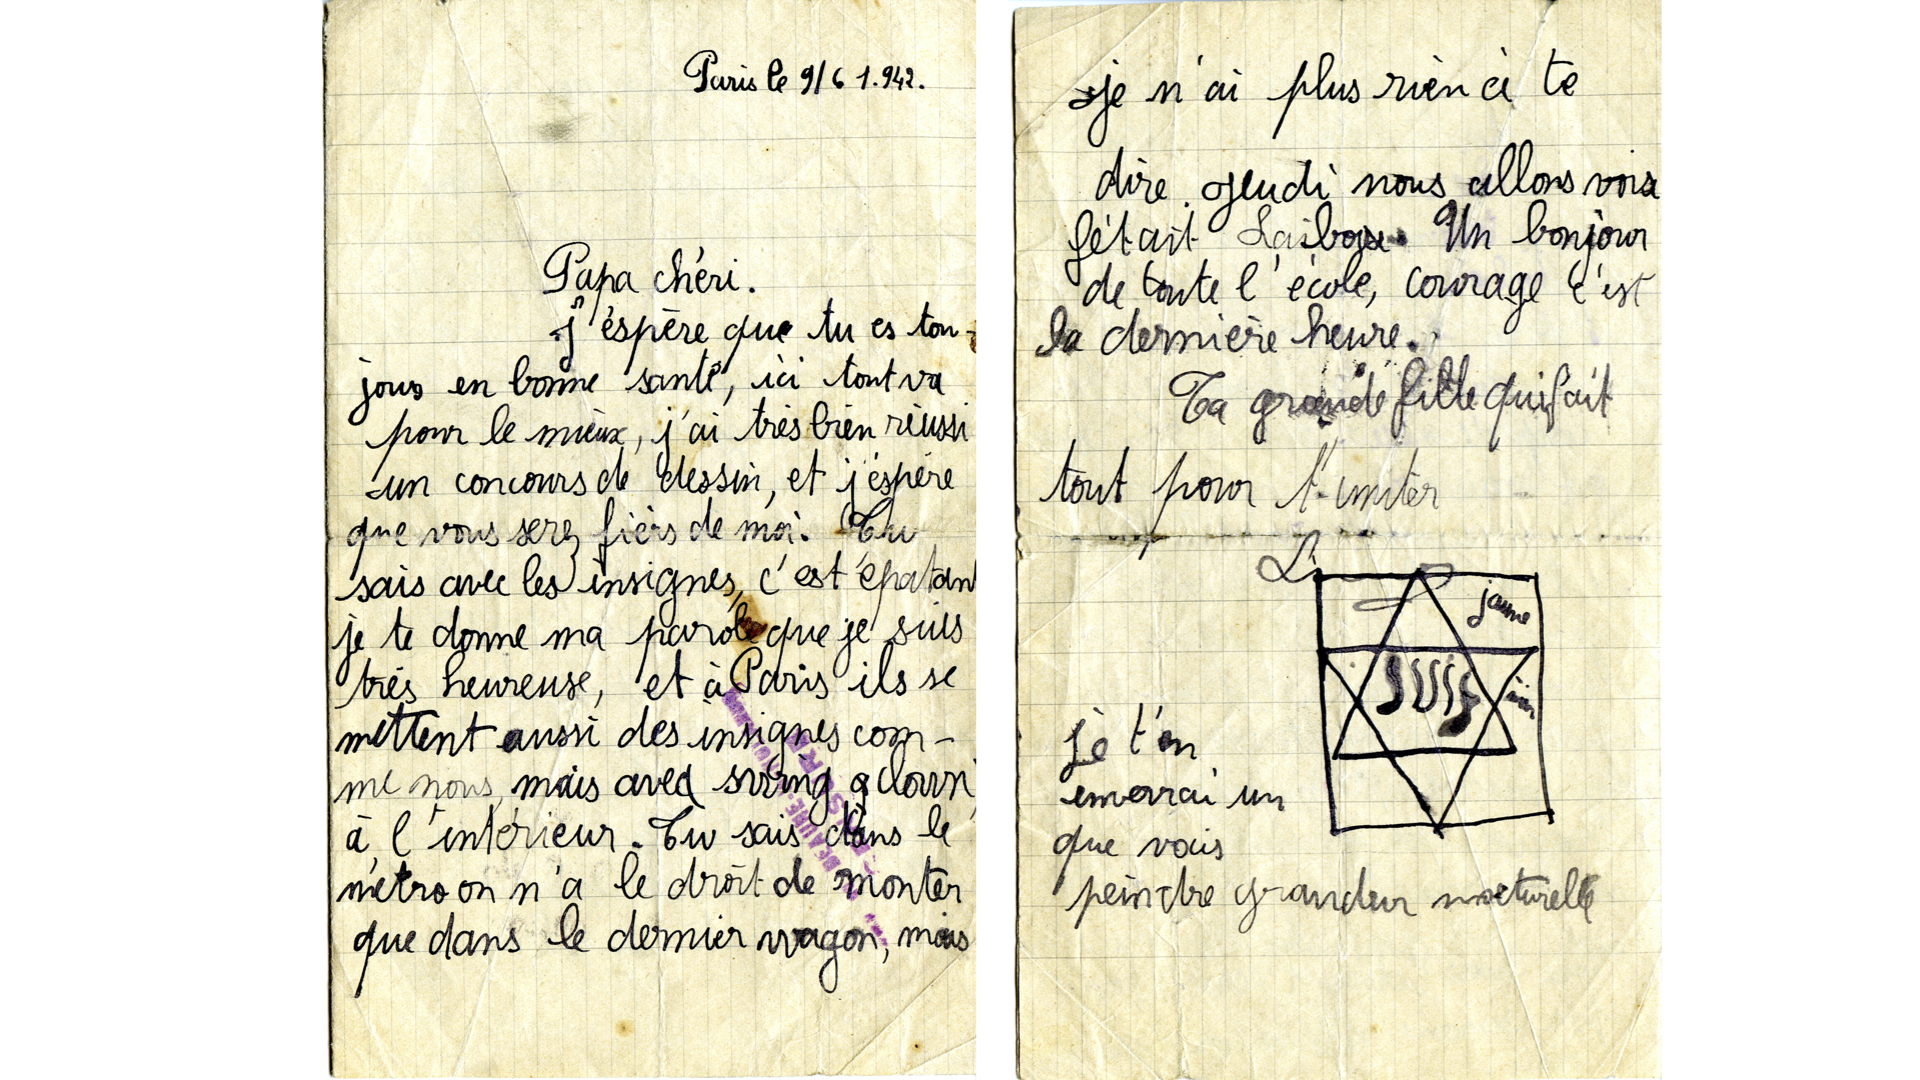 Paris le 9/6 1.942.
Papa chéri.
j'éspère que tu es tou-
jours en bonne santé, ici tout va
pour le mieux, j'ai très bien réussi
un concours de dessin, et j'éspère
que vous serez fièrs de moi. Tu
sais avec les insignes, c'est épatan
je te donne ma parole que je suis
très heureuse, et à Paris ils se
mettent aussi des insignes com-
me nous, mais avec swing
à l'intérieur. Tu sais dans le
métro on n'a le droit de monter
que dans le dernier wagon, mais
je n'ai plus rien à te
dire. Jeudi nous allons voir
c'était. Un bonjour
de toute l'école, courage c'est
la dernière heure.
Ta grande fille qui fait
tout pour t'imiter
jaune
JUIF
je t'en
enverrai un
que vais
peindre grandeur naturelle